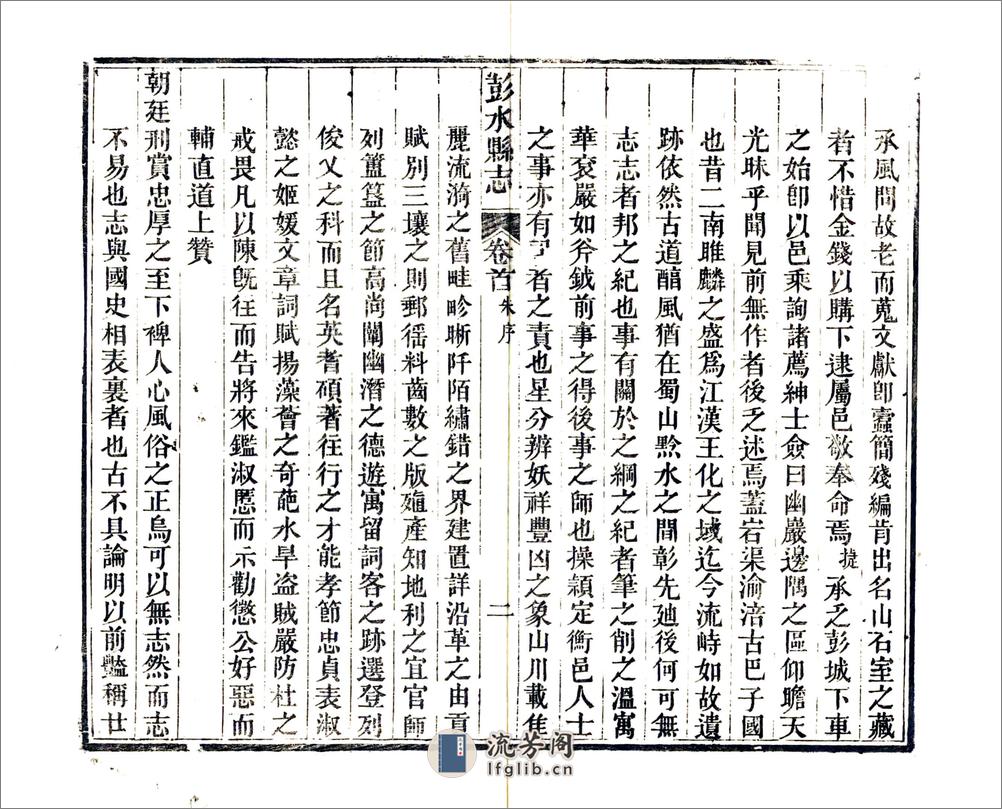 承風問故老而蒐文獻卽蠹簡殘編肯出名山石室之藏
者不惜金錢以購下逮屬邑敬奉命焉㨗承乏彭城下車
之始卽以邑乘詢諸薦紳士僉曰幽巖邊隅之區仰瞻天
光昧乎聞見前無作者後乏述焉蓋宕渠渝涪古巴子國
也昔二南雎麟之盛爲江漢王化之域迄今流峙如故遺
跡依然古道醕風猶在蜀山黔水之間彰先廸後何可無
志志者邦之紀也事有關於之綱之紀者筆之削之溫寓
華衮嚴如斧鉞前事之得後事之師也操潁定衡邑人士
之事亦有司者之責也星分辨妖祥豐凶之象山川載佳
彭水縣志
卷首
朱序
二
麗流漪之舊畦畛晰阡陌繡錯之界建置詳沿革之由貢
賦別三壤之則郵徭料齒數之版殖產知地利之宜官師
列簠簋之節高尚闡幽潛之德遊寓留詞客之跡選登列
俊乂之科而且名英耆碩著往行之才能孝節忠貞表淑
懿之姬媛文章詞賦揚藻薈之奇葩水旱盜賊嚴防杜之
戒畏凡以陳旣往而告將來鑑淑慝而示勸懲公好惡而
輔直道上贊
朝廷刑賞忠厚之至下裨人心風俗之正烏可以無志然而志
不易也志與國史相表裏者也古不具論明以前豔稱世
流芳阁
lfglib.cn